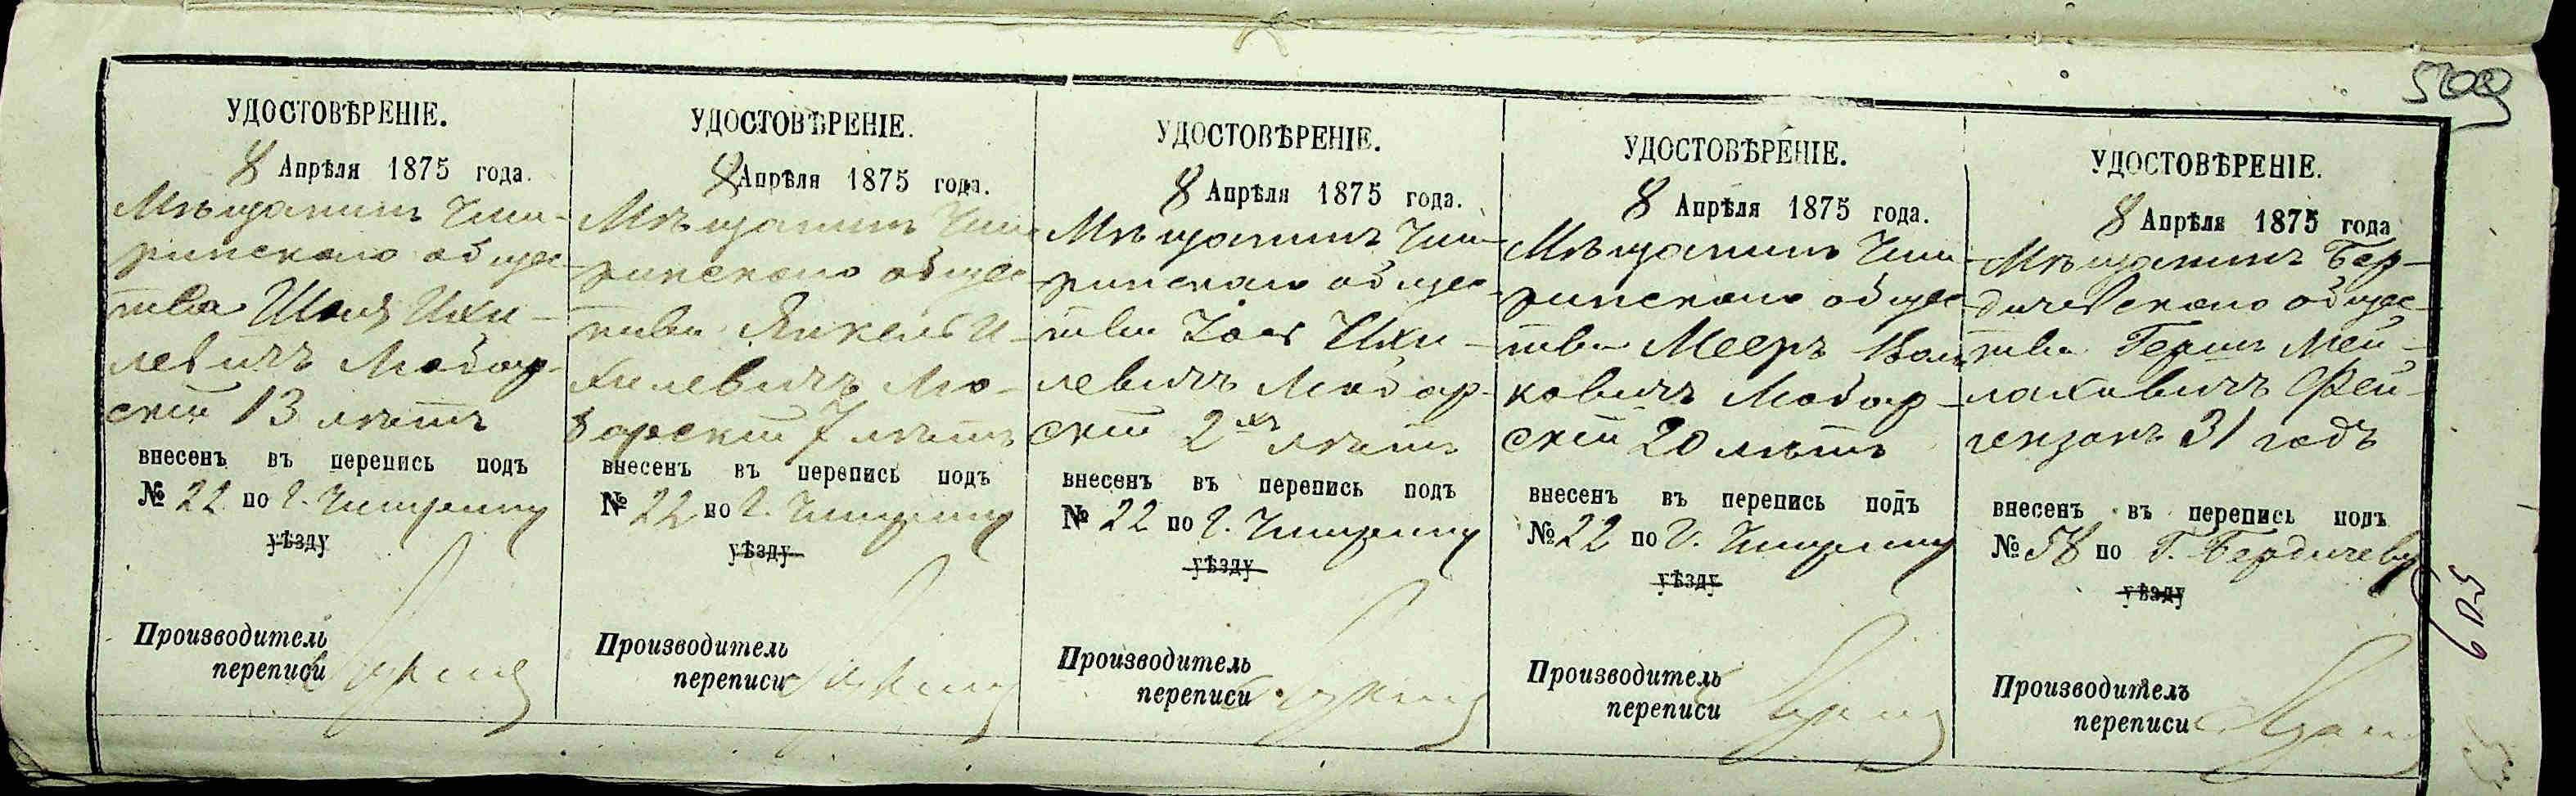 УДОСТОВѢРЕНІЕ.
8 Апрѣля 1875 года.
Мѣщанинъ Чиги-
ринскаго общес-
тва Шая Ихи-
левичъ Любар-
скій 13 лѣтъ
внесенъ въ перепись подъ
№ 22 по г. Чигирину
уѣзду
Производитель
переписи
УДОСТОВѢРЕНІЕ.
8 Апрѣля 1875 года.
Мѣщанинъ Чиги
ринскаго общес-
тва Янкель И-
хилевичъ Лю-
барскій 7 лѣтъ
внесенъ въ перепись подъ
№ 22 по г. Чигирину
уѣзду
Производитель
переписи
УДОСТОВѢРЕНІЕ.
8 Апрѣля 1875 года.
Мѣщанинъ Чиги-
ринскаго общес-
тва Ихи-
левичъ Любар-
скій 2хъ лѣтъ
внесенъ въ перепись подъ
№ 22 по г. Чигирину
уѣзду
Производитель
переписи
УДОСТОВѢРЕНІЕ.
8 Апрѣля 1875 года.
Мѣщанинъ Чиги-
ринскаго общес-
тва Мееръ
ковичъ Любар-
скій 20 лѣтъ
внесенъ въ перепись подъ
№ 22 по г. Чигирину
уѣзду
Производитель
переписи
УДОСТОВѢРЕНІЕ.
8 Апрѣля 1875 года
Мѣщанинъ Бер-
дичевскаго общес-
тва Гершъ Мей-
лаховичъ Фей-
гензонъ 31 годъ
внесенъ въ перепись подъ
№ 58 по г. Бердичеву
уѣзду
Производитель
переписи
605